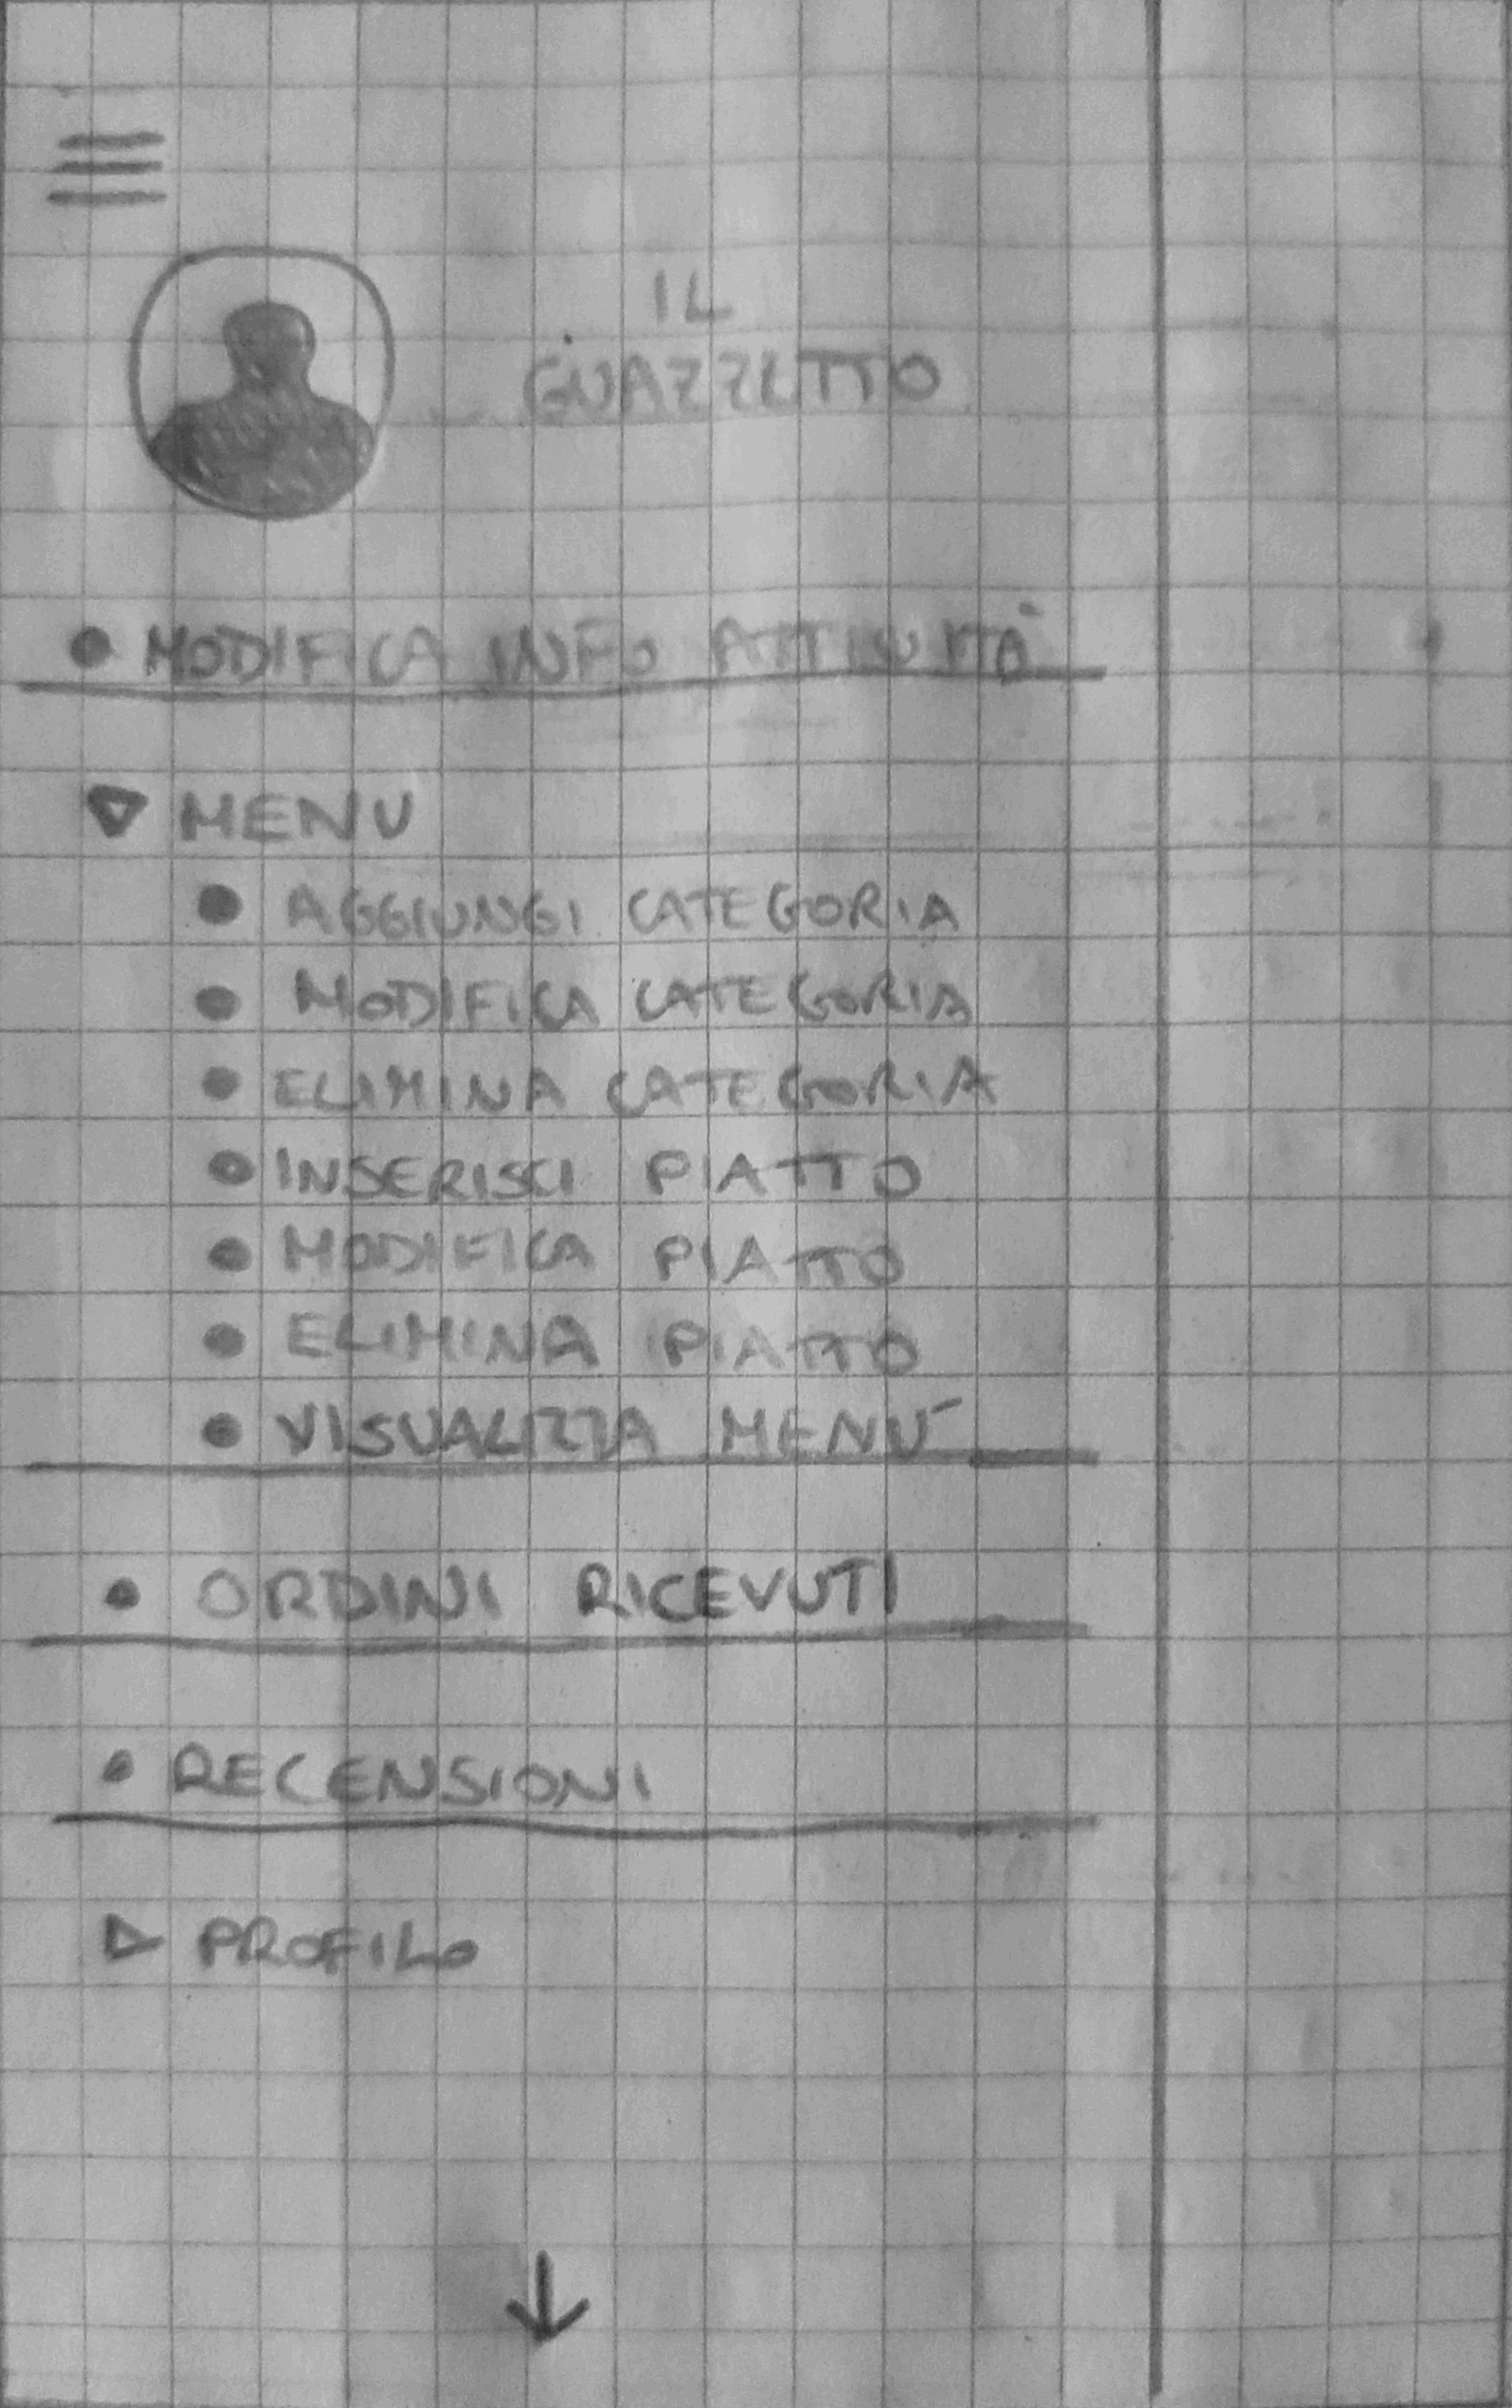 IL
GUAZZETTO
MODIFICA INFO ATTIVITÀ
MENU
AGGIUNGI CATEGORIA
MODIFICA CATEGORIA
ELIMINA CATEGORIA
INSERISCI PIATTO
MODIFICA PIATTO
ELIMINA PIATTO
VISUALIZZA MENÙ
ORDINI RICEVUTI
RECENSIONI
PROFILO